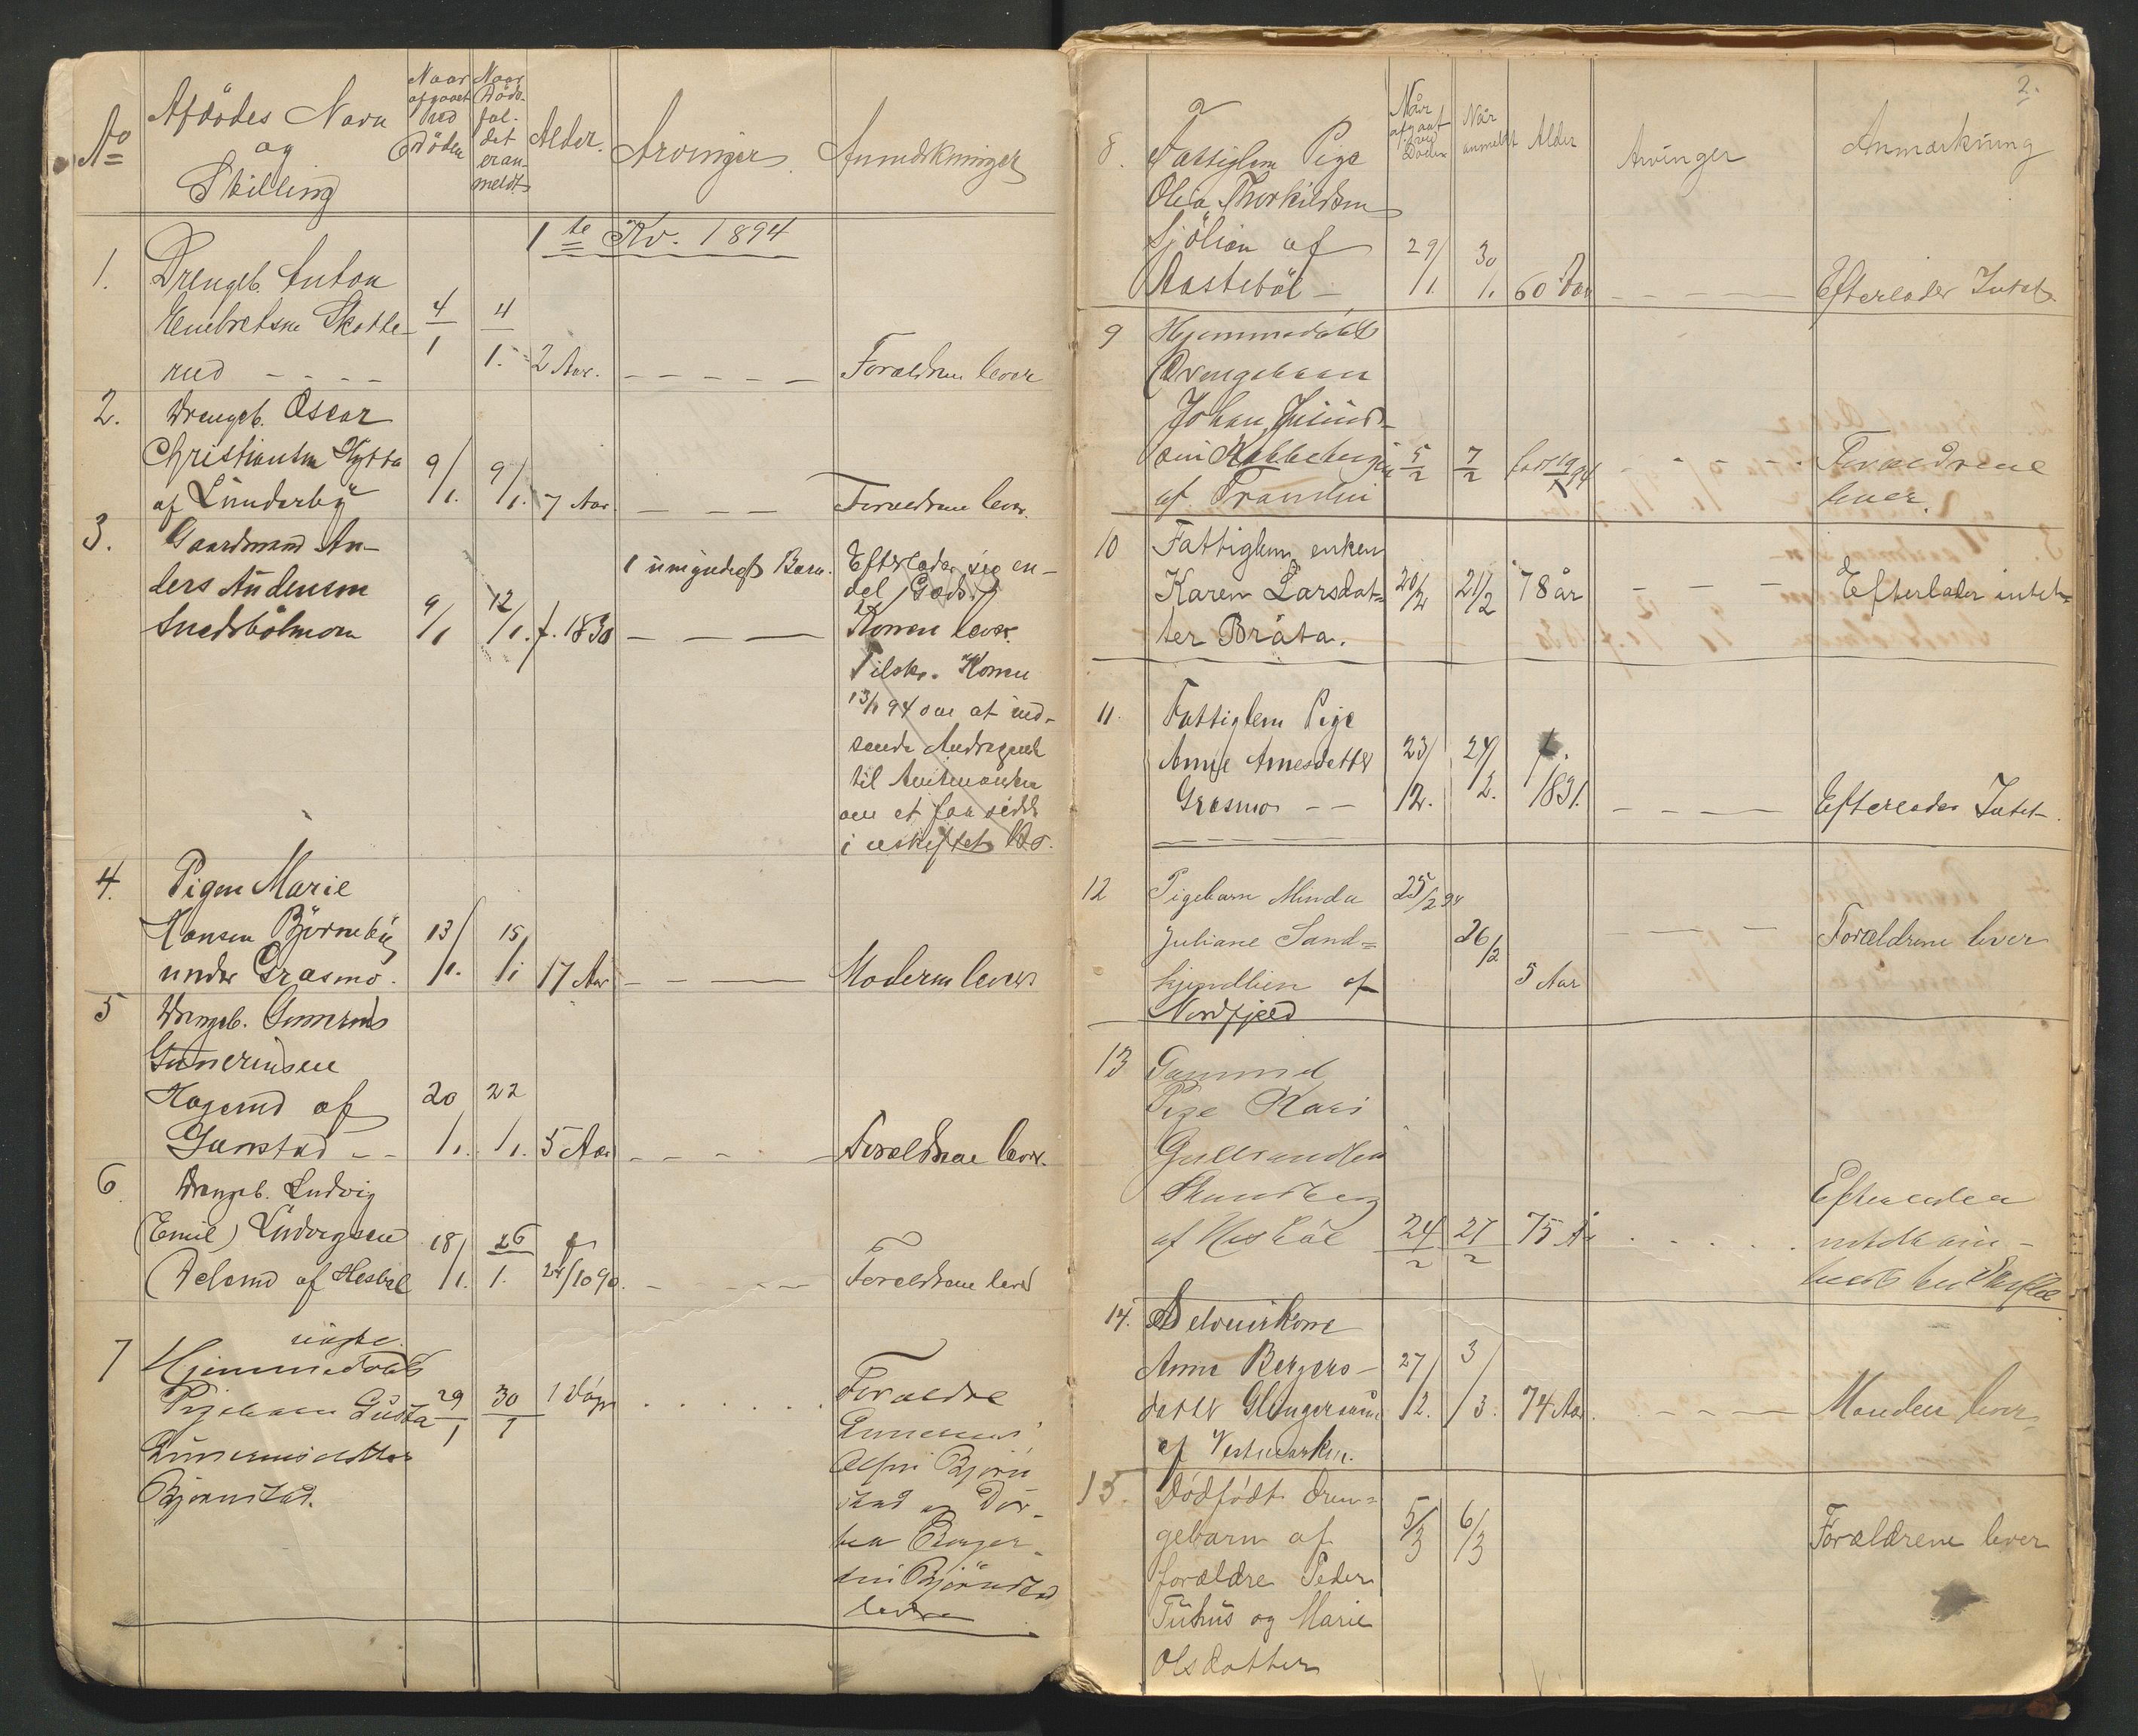 No
Afdödes Navn
og
Stilling
Naar
afgaaet
ved
Döden
Naar
Döds-
fal-
det
er an-
meldt
Alder.
Arvinger.
Anmerkninger
1te Kv. 1894
1. Drengb. Anton
Embretsen Skotte-
rud - - - - 4/1 4/1. 2 Aar. - - - - - Forældrene lever
2. Drengb. Oscar
Christiansen Hytta
af Lunderby 9/1. 9/1. 7 Aar. - - - Forældrene lever.
3. Gaardmand An-
ders Audensen
9/1 12/1. f. 1830 - - -
1 umyndigt Barn.
Efterlader sig en-
del Gods.
Konen lever.
Tilskr. Konen
13/1 94 om at ind-
sende Andragende
til Amtmanden
om at faa sidde
i uskiftet Bo.
4. Pigen Marie
Hansen Björneby
under Grasmo. 13/1. 15/1 17 Aar - - - Moderen lever
5 Drengb. Gunerius
Guneriusen
Hagerud af
20/1. 22/1. 5 Aar - - - - Forældrene lever.
6 Drengb. Ludvig
(Emil) Ludvigsen
18/1. 26/1. f 24/10 90. - - - Forældrene lever
7 Hjemmedøbt
Pigebarn Gusta 29/1 30/1 1 Døgn . . . . . .
Guneriusdatter
Bjørnstad.
Forældre
Gunerius
Olsen Bjørn
stad og Dor-
thea Borger-
sen Bjørnstad
lever
2.
Når
afgaat
ved
Døden
Når
anmeldt
Alder
Arvinger
Anmærkning
8. Fattiglem Pige
Olea Thorkildsen
Sjölien af
Aastebøl - 29/1. 30/1. 60 Aar - - - Efterlader Intet.
9 Hjemmedøbt
Drengebarn
Johan
5/2 7/2 - - - - Forældrene
lever.
10 Fattiglem enken
Karen Larsdat=
ter Bråta. 20/2 21/2 78 år - - - Efterlader intet.
11. Fattiglem Pige
Anne Arnesdatter
Grasmo - - 23/2. 24/2. f. 1831. - - - Efterlader Intet.
12 Pigebarn Minda
Juliane Sand=
kjendlien af
Nordfjeld 25/2 94 26/2 5 Aar - - - Forældrene lever
13 Gammel
Pige Kari
24/2 27/2 75 År . . . . .
Efterlader
14. Selveierkone
Anne Borgers-
datter Glengerum
af Vestmarken. 27/2. 3/3. 74 Aar. - - - Manden lever
15. Dødfødt dren=
gebarn af
forældre Peder
Tuhus og Marie
Olsdatter 5/3 6/3 Forældrene lever